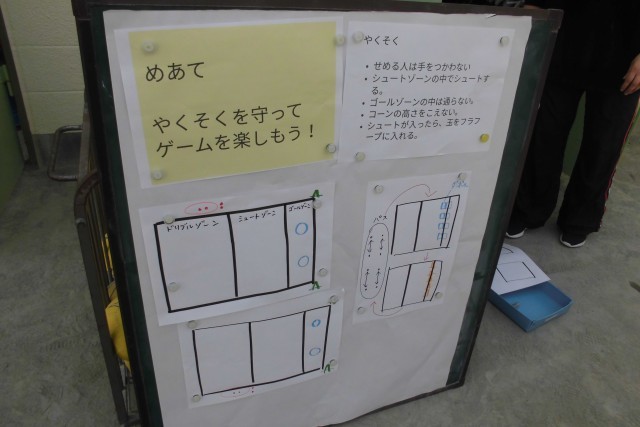 めあて
やくそくを守って
ゲームを楽しもう！
やくそく
• せめる人は手をつかわない
• シュートゾーンの中でシュートす
る。
• ゴールゾーンの中は通らない。
• コーンの高さをこえない。
• シュートが入ったら、玉をフラフ
ープに入れる。
ドリブルゾーン
シュートゾーン
ゴールゾーン
パス